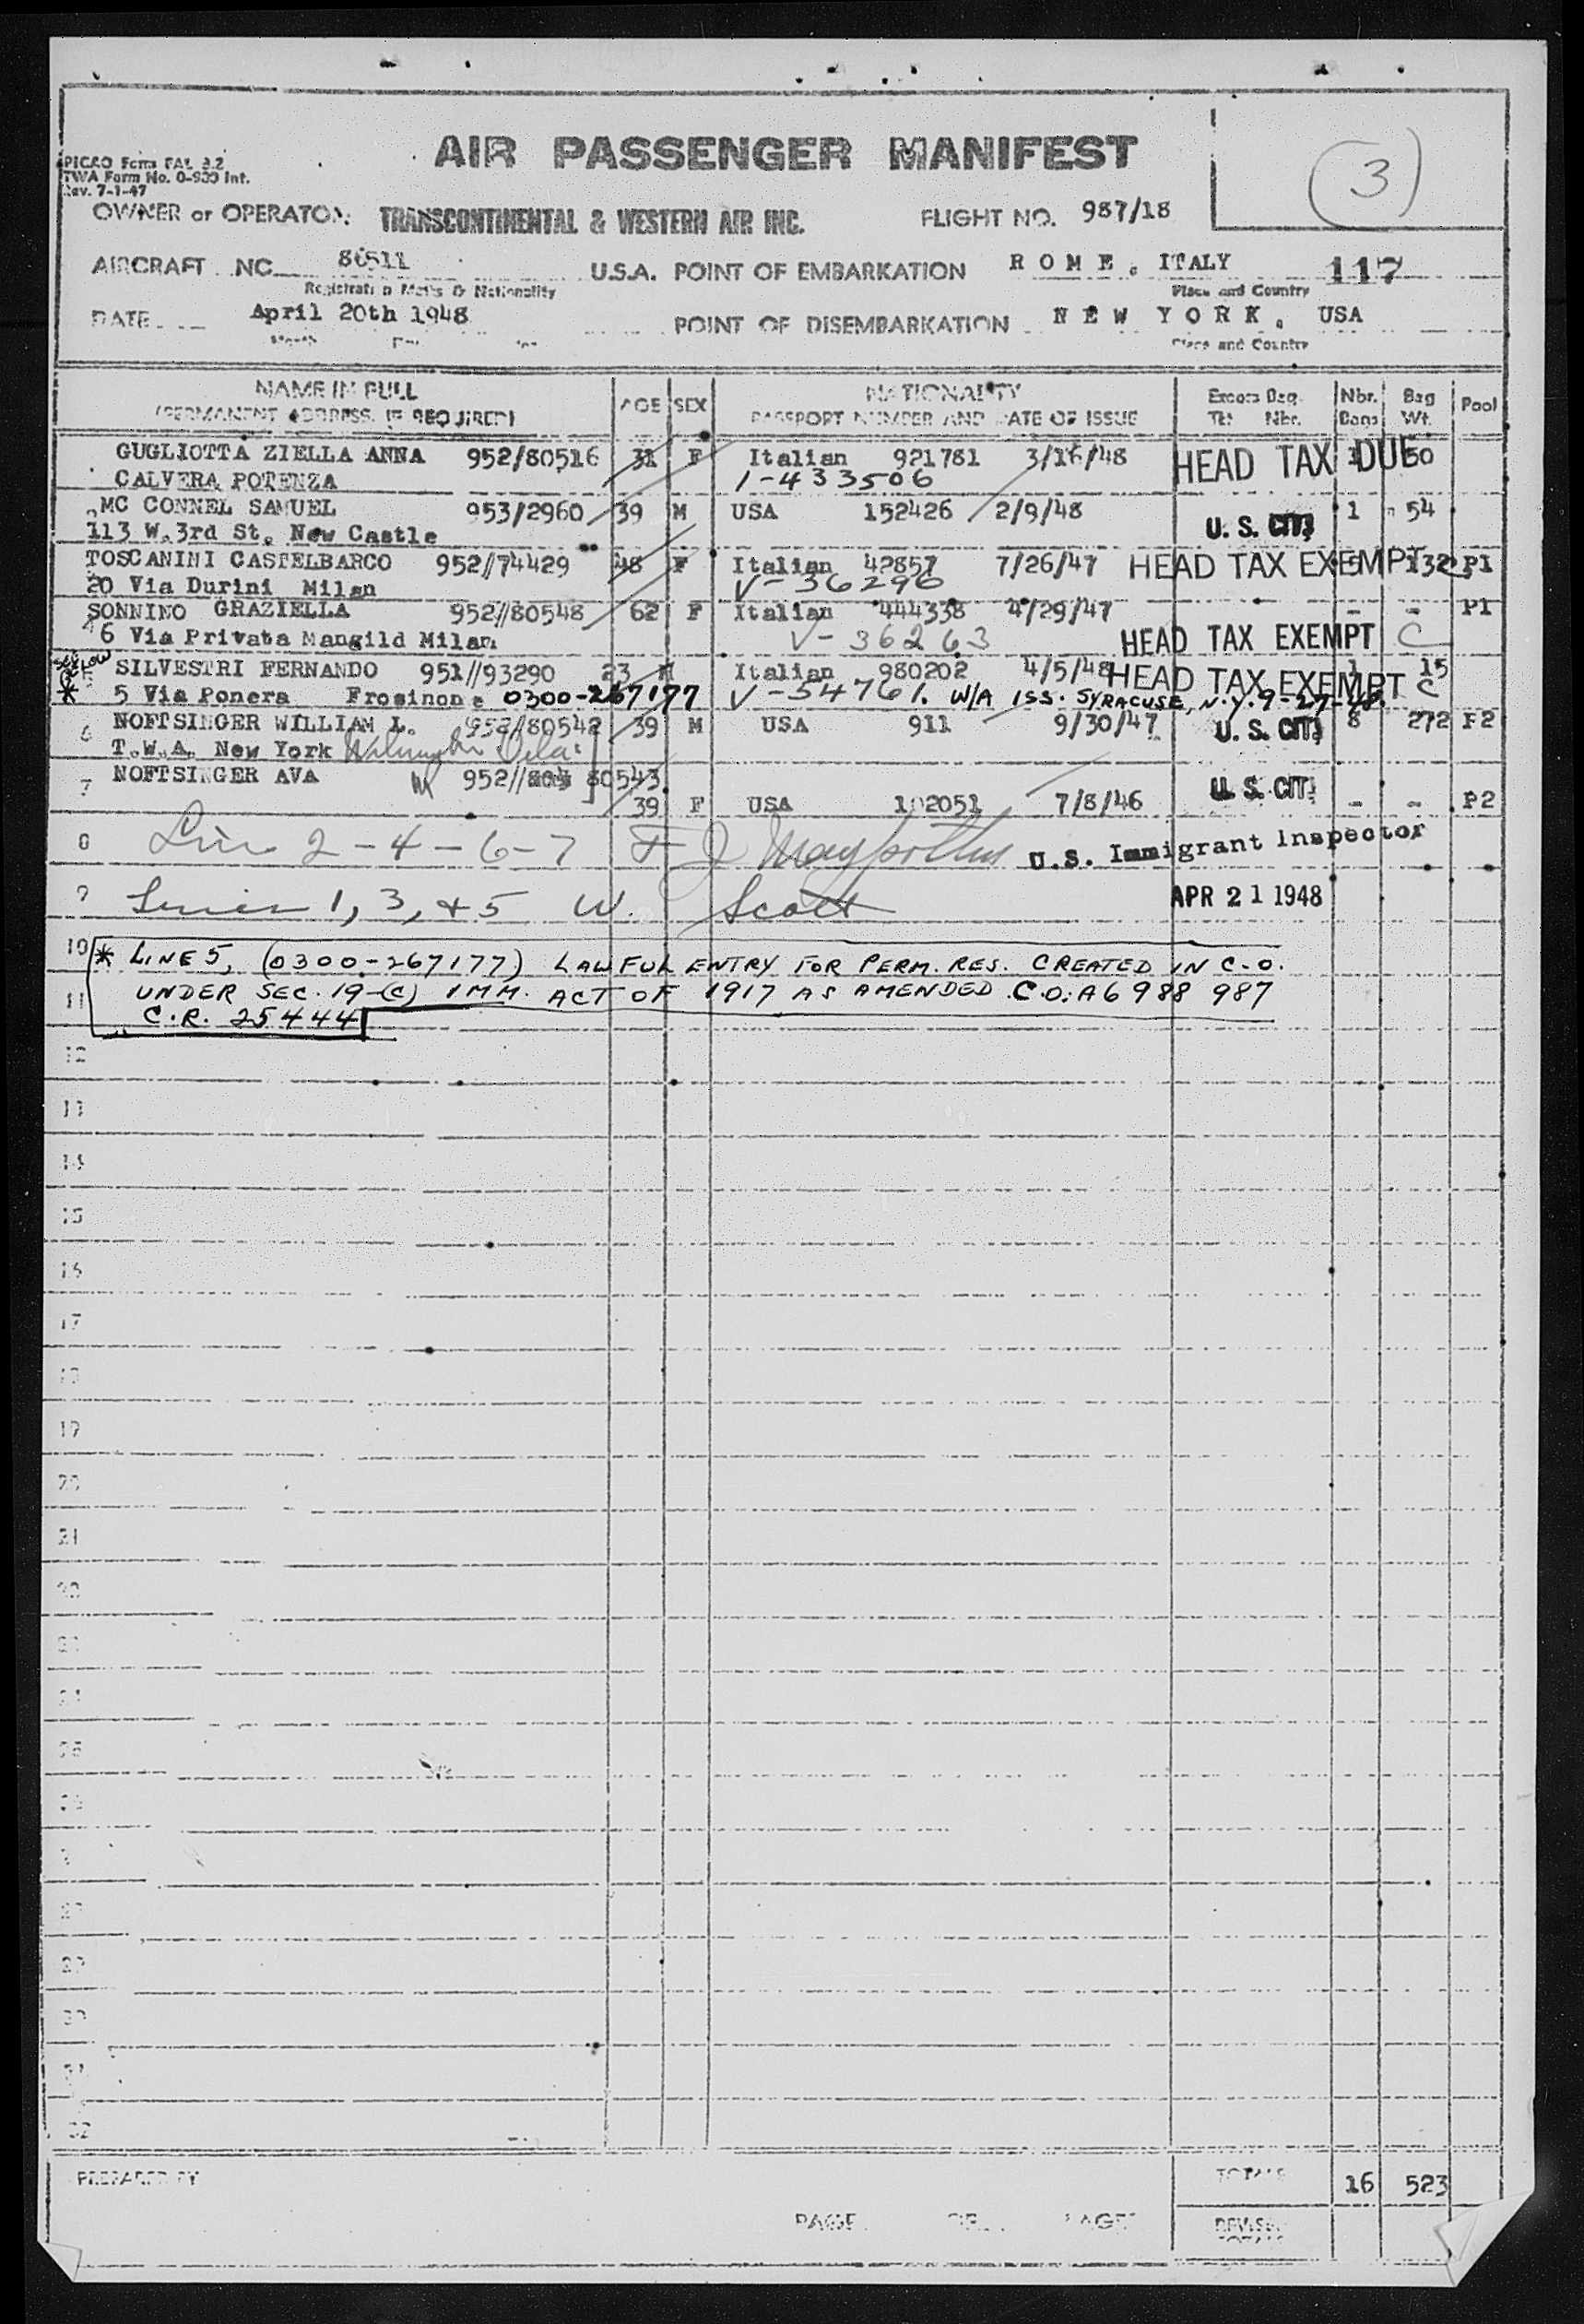 AIR PASSENGER MANIFEST
(3)
PICAO Form FAL 3.2
TWA Form No. 0-930 Int.
Rev. 7-1-47
OWNER or OPERATOR: TRANSCONTINENTAL & WESTERN AIR INC. FLIGHT NO. 987/18
AIRCRAFT NC 86511 U.S.A. POINT OF EMBARKATION ROME, ITALY 117
Registration Marks & Nationality Place and Country
DATE April 20th 1948 POINT OF DISEMBARKATION NEW YORK, USA
Month Place and Country
NAME IN FULL AGE SEX NATIONALITY Excess Bag. Nbr. Bag Pool
(PERMANENT ADDRESS, IF REQUIRED) PASSPORT NUMBER AND DATE OF ISSUE Tkt Nbr. Bags Wt.
GUGLIOTTA ZIELLA ANNA 952/80516 31 F Italian 921781 3/16/48 HEAD TAX DUE 50
CALVERA POTENZA 1-433506
MC CONNEL SAMUEL 953/2960 39 M USA 152426 2/9/48 U. S. CIT. 1 54
113 W. 3rd St. New Castle
TOSCANINI CASTELBARCO 952//74429 48 F Italian 42857 7/26/47 HEAD TAX EXEMPT 132 P1
20 Via Durini Milan V-36296
SONNINO GRAZIELLA 952//80548 62 F Italian 444338 4/29/47 - - P1
6 Via Privata Mangild Milan V-36263 HEAD TAX EXEMPT C
SEE BELOW
SILVESTRI FERNANDO 951//93290 23 M Italian 980202 4/5/48 HEAD TAX EXEMPT 1 15
* 5 Via Ponera Frosinone 0300-267177 V-54761. W/A ISS. SYRACUSE, N.Y. 9-27-48. C
6 NOFTSINGER WILLIAM L. 952//80542 39 M USA 911 9/30/47 U. S. CIT. 8 272 P2
T.W.A. New York Wilmington Dela.
7 NOFTSINGER AVA 952// 80543 U. S. CIT.
39 F USA 102051 7/8/46 - - P2
8 Line 2-4-6-7 F J U.S. Immigrant Inspector
9 Lines 1, 3, & 5 W. Scott APR 21 1948
10 * LINE 5, (0300-267177) LAWFUL ENTRY FOR PERM. RES. CREATED IN C.O.
11 UNDER SEC. 19-(C) IMM. ACT OF 1917 AS AMENDED C.O: A6 988 987
C.R. 25444
12
13
14
15
16
17
18
19
20
21
32
PREPARED BY TOTALS 16 523
PAGE OF PAGES REVISED TOTALS